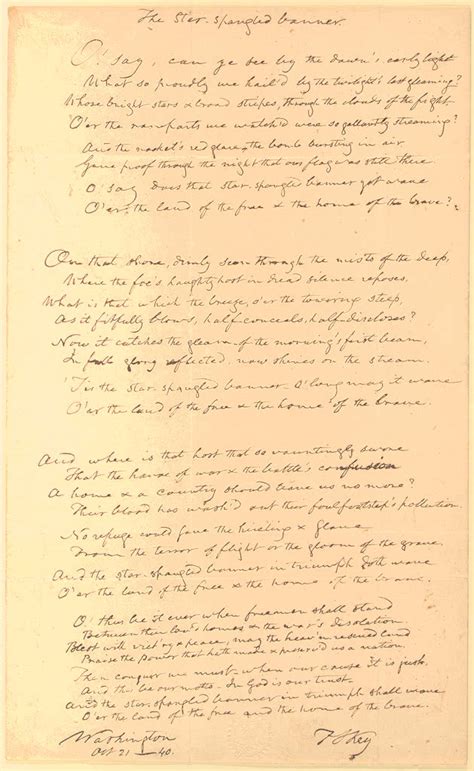 The Star-spangled banner.
O! say, can ye see by the dawn's early light
What so proudly we hail'd by the twilight's last gleaming?
Whose bright stars & broad stripes, through the clouds of the fight,
O'er the ramparts we watch'd were so gallantly streaming?
And the rocket's red glare, the bomb bursting in air
Gave proof through the night that our flag was still there
O! say does that star-spangled banner yet wave
O'er the land of the free & the home of the brave?
On that shore, dimly seen through the mists of the deep,
Where the foe's haughty host in dread silence reposes.
What is that which the breeze, o'er the towering steep,
As it fitfully blows, half conceals, half discloses?
Now it catches the gleam of the morning's first beam,
In full glory reflected, now shines on the stream.
'Tis the star-spangled banner O! long may it wave
O'er the land of the free & the home of the brave.
And where is that host that so vauntingly swore
That the havoc of war & the battle's confusion
A home & a country should leave us no more?
Their blood has wash'd out their foul footstep's pollution.
No refuge could save the hireling & slave
From the terror of flight or the gloom of the grave
And the star-spangled banner in triumph doth wave
O'er the land of the free & the home of the brave.
O! thus be it ever when freemen shall stand
Between their lov'd homes & the war's desolation.
Blest with vict'ry & peace, may the heav'n rescued land
Praise the power that hath made & preserved us a nation.
Then conquer we must, when our cause it is just,
And this be our motto - In God is our trust.
And the star-spangled banner in triumph shall wave
O'er the land of the free and the home of the brave.
Washington
Oct 21 - 40.
F S Key